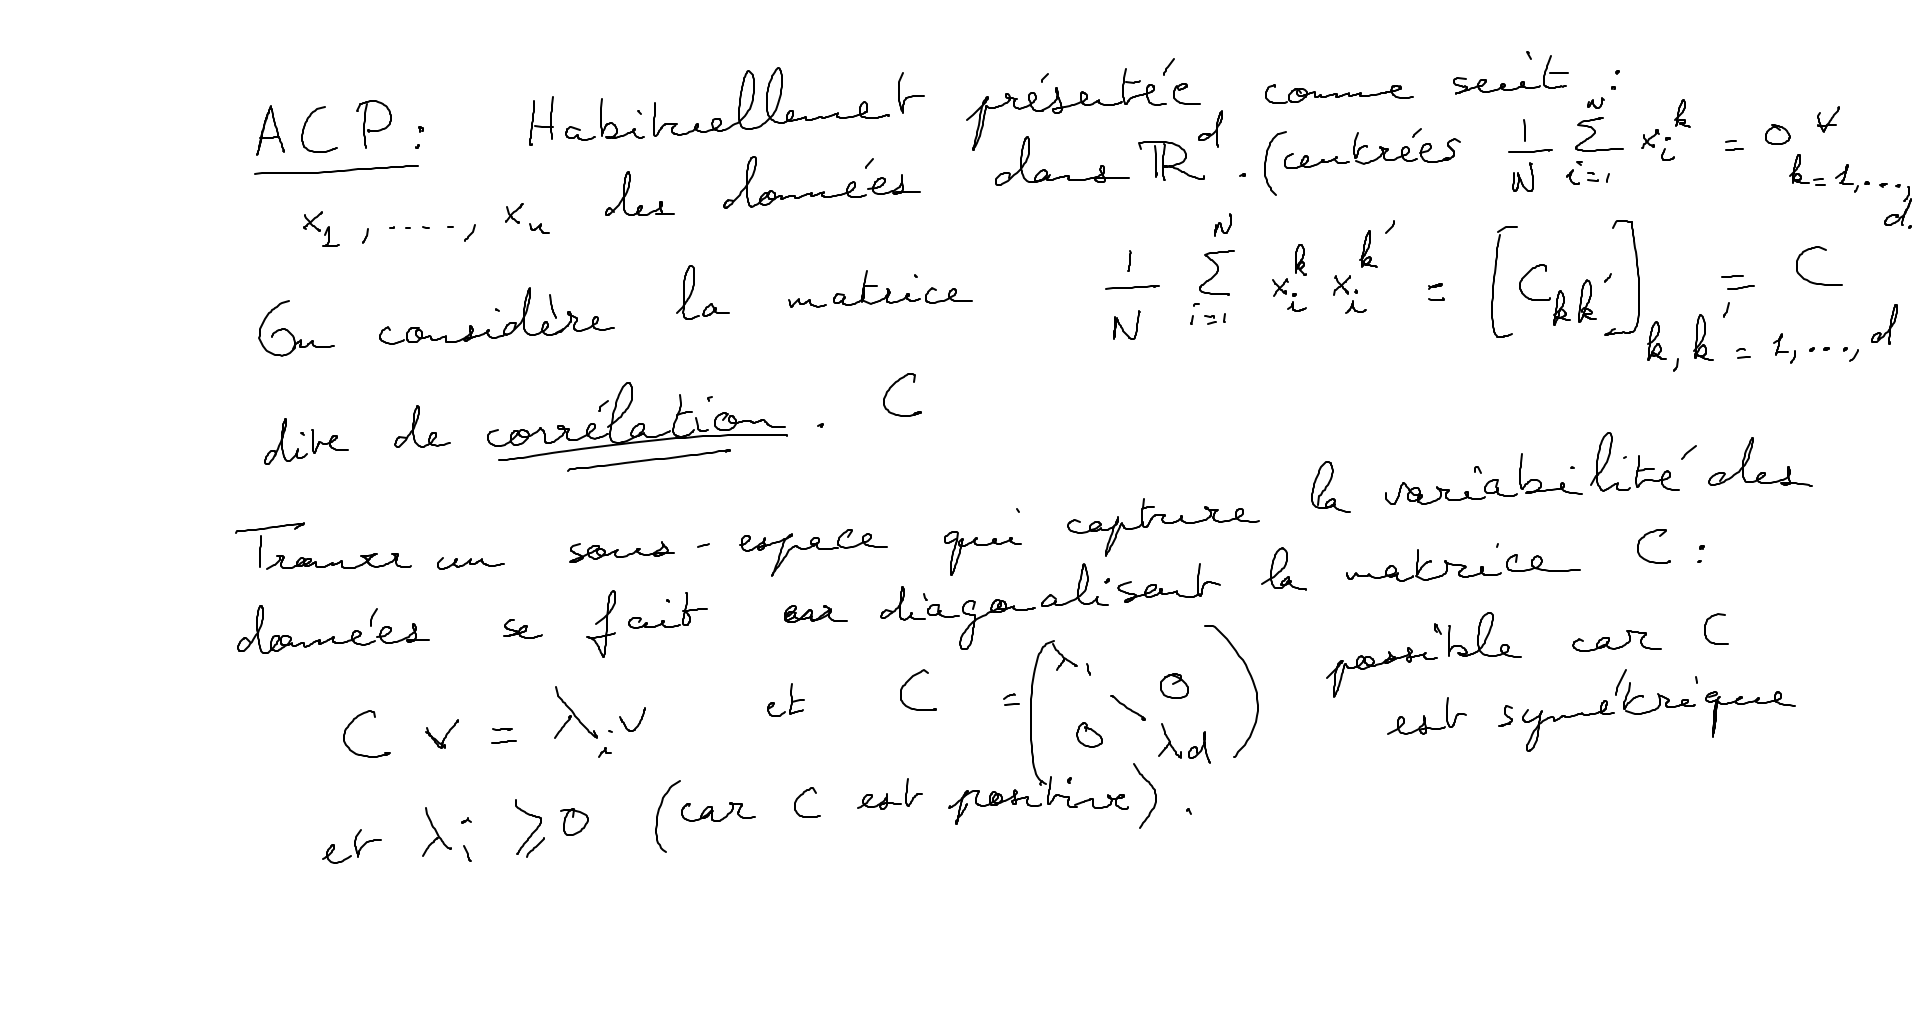 ACP : Habituellement présentée comme suit :
x_1, ....., x_n des données dans ℝ^d. (centrées 1/N Σ_{i=1}^N x_i^k = 0 ∀ k=1,...,d.
On considère la matrice 1/N Σ_{i=1}^N x_i^k x_i^{k'} = [C_{kk'}]_{k,k'=1,...,d} = C
dite de corrélation. C
Trouver un sous-espace qui capture la variabilité des
données se fait en diagonalisant la matrice C :
C v = λ_i v et C = (λ_1 \ λ_d, 0 0) possible car C
est symétrique
et λ_i ⩾ 0 (car C est positive).